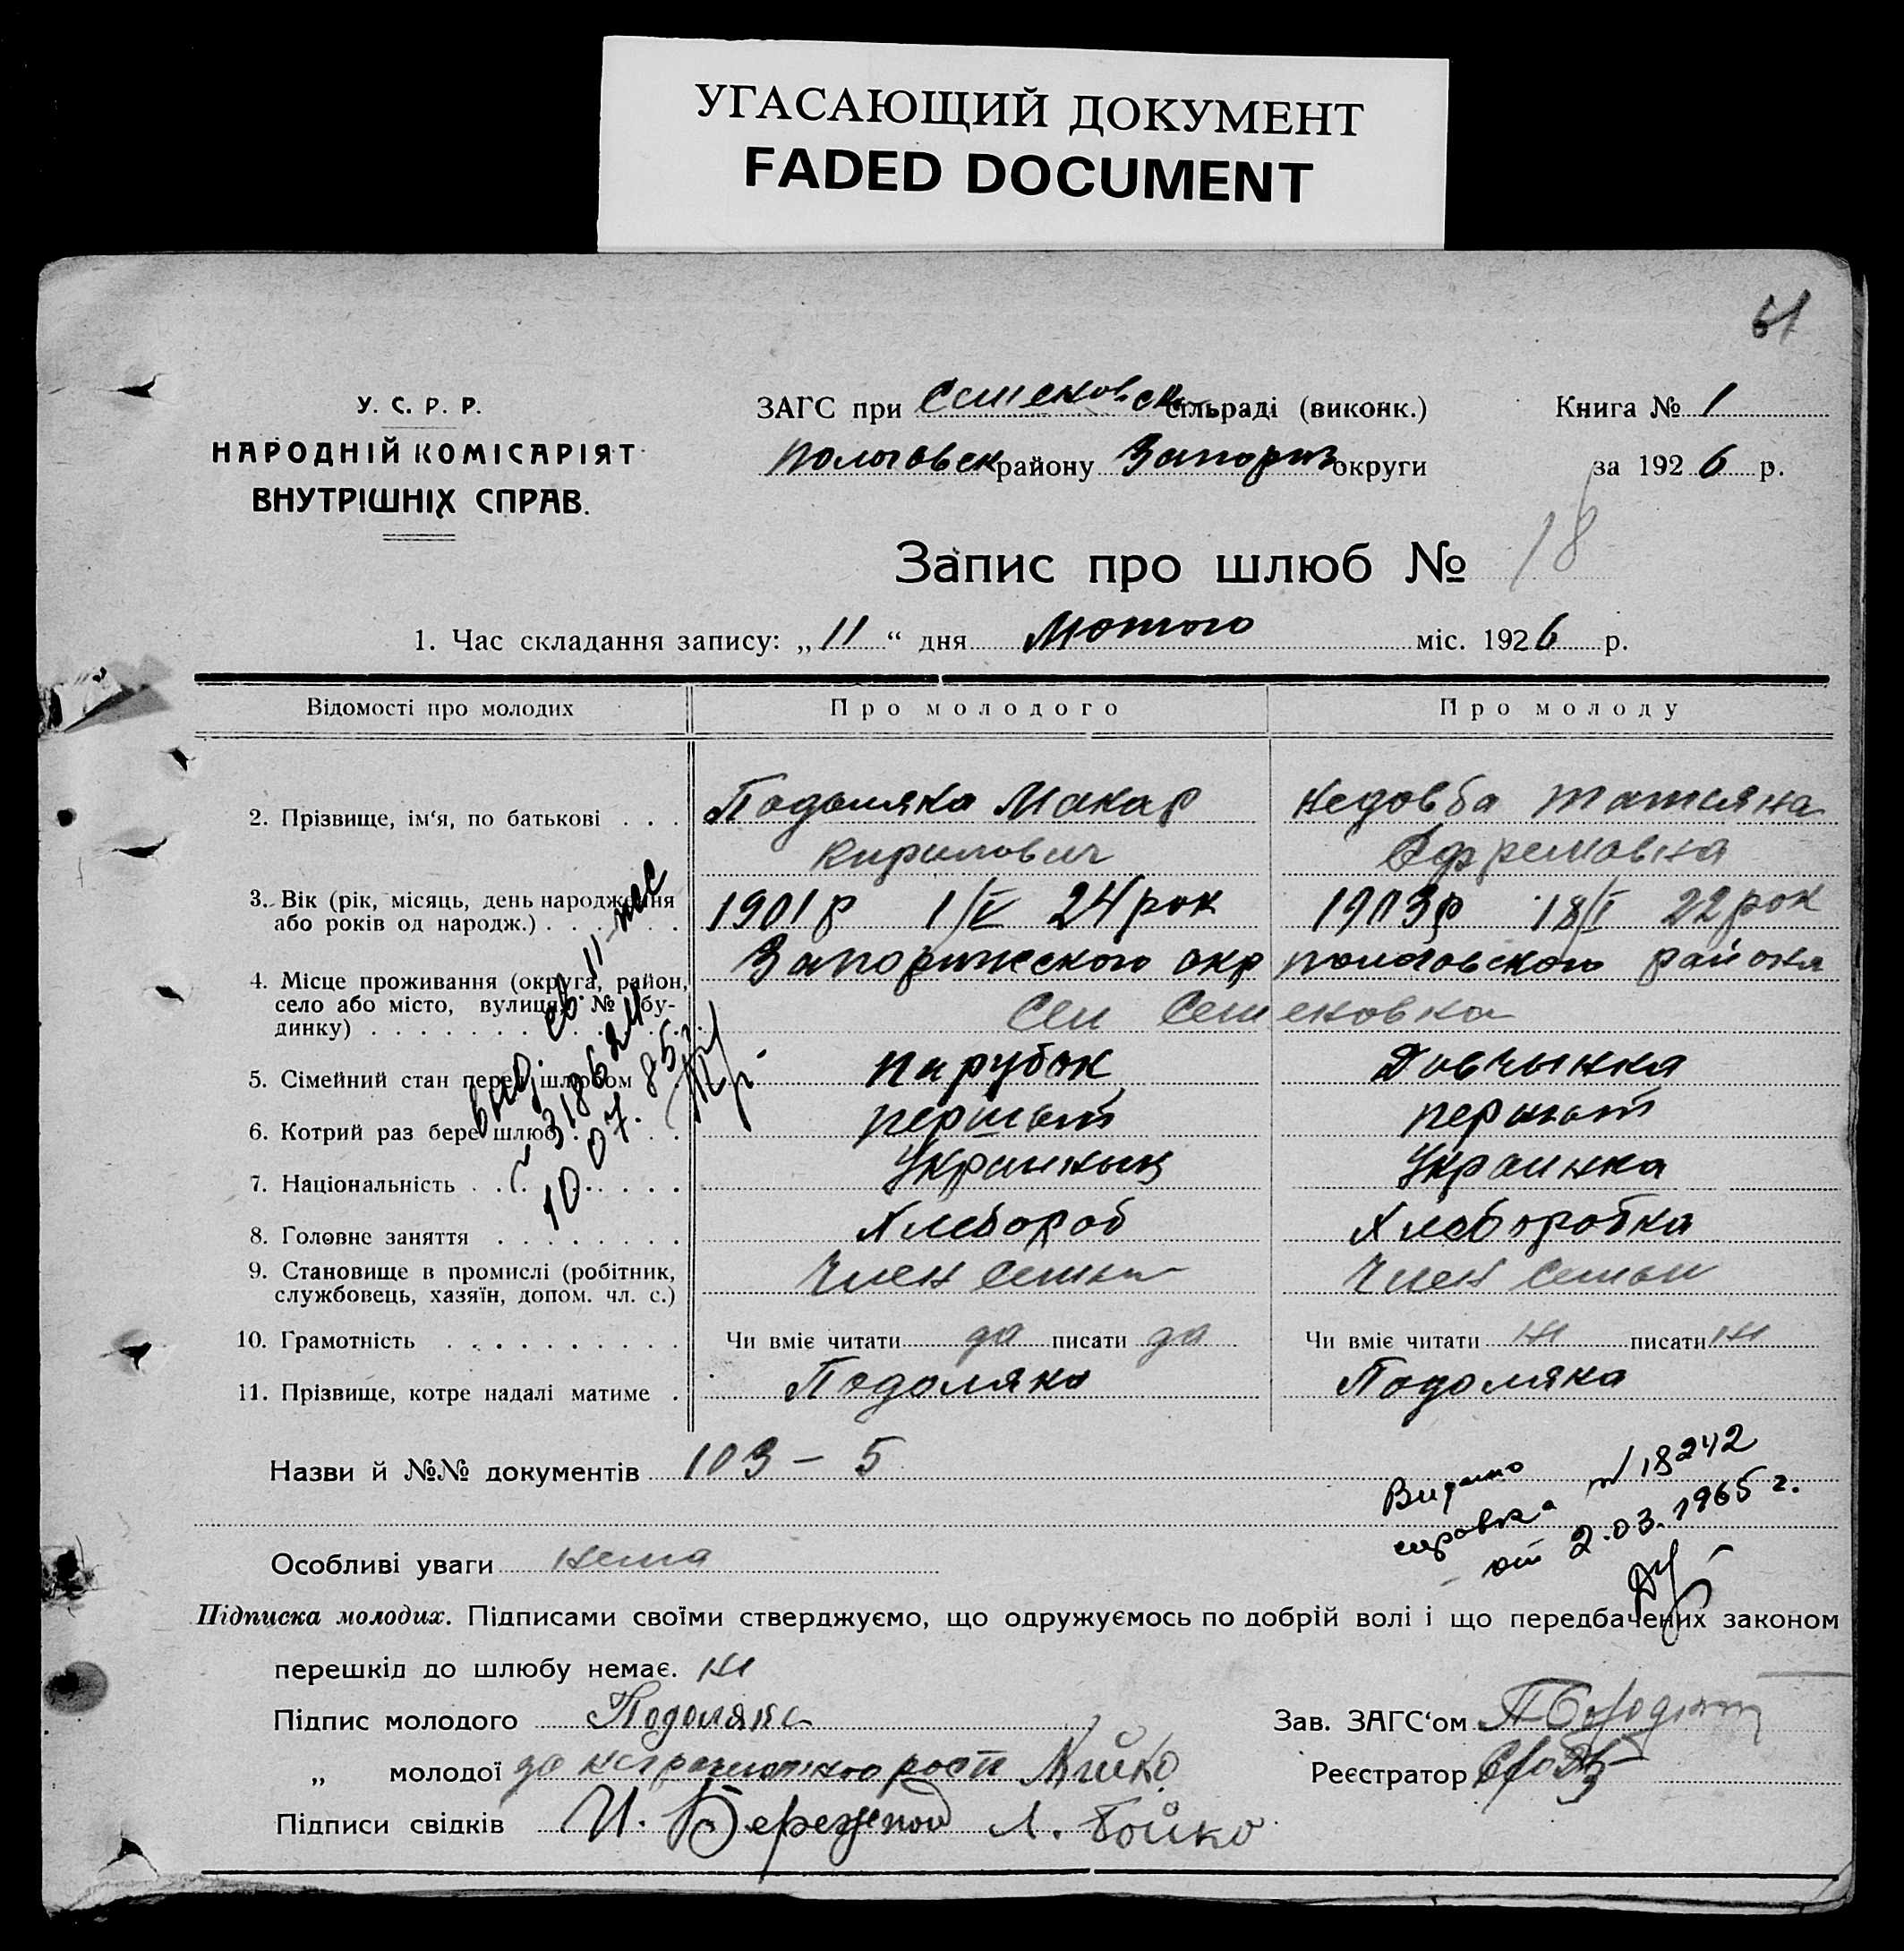 УГАСАЮЩИЙ ДОКУМЕНТ
FADED DOCUMENT
У. С. Р. Р.
НАРОДНІЙ КОМІСАРІЯТ
ВНУТРІШНІХ СПРАВ.
ЗАГС при Семеновск сільраді (виконк.)
Пологовск району Запориз округи
Книга № 1
за 1926 р.
Запис про шлюб № 18
1. Час складання запису: „11“ дня Мотого міс. 1926 р.
Відомості про молодих
Про молодого
Про молоду
2. Прізвище, ім‘я, по батькові . . .
Подоляка Макар
Недовба Татияна
Кирилович
Ефремовна
3. Вік (рік, місяць, день народження
або років од народж.) . . . . . .
1901 р 1/V 24 рок
1903 р 18/I 22 рок
4. Місце проживання (округа, район,
село або місто, вулиця, № бу-
динку) . . . . . . . . . . . .
Запорижского окр пологовского района
Сел Семеновка
5. Сімейний стан перед шлюбом
парубок
Довчынка
6. Котрий раз бере шлюб . . . . .
першыт
першыт
7. Національність . . . . . . . .
Украиныц
Украинка
8. Головне заняття . . . . . . . .
Хлебороб
Хлеборобка
9. Становище в промислі (робітник,
службовець, хазяїн, допом. чл. с.)
Член семьи
Член семьи
10. Грамотність . . . . . . . . . .
Чи вміє читати да писати да
Чи вміє читати ни писати ни
11. Прізвище, котре надалі матиме .
Подоляка
Подоляка
10. 07. 85
Назви й №№ документів 103 – 5
Видано
справка № 18242
от 2.03.1965 г.
Особливі уваги нема
Підписка молодих. Підписами своїми стверджуємо, що одружуємось по добрій волі і що передбачених законом
перешкід до шлюбу немає. ни
Підпис молодого Подоляка
Зав. ЗАГС‘ом
„ молодої за неграмотностю рости
Реєстратор
Підписи свідків И. Л. Бойко